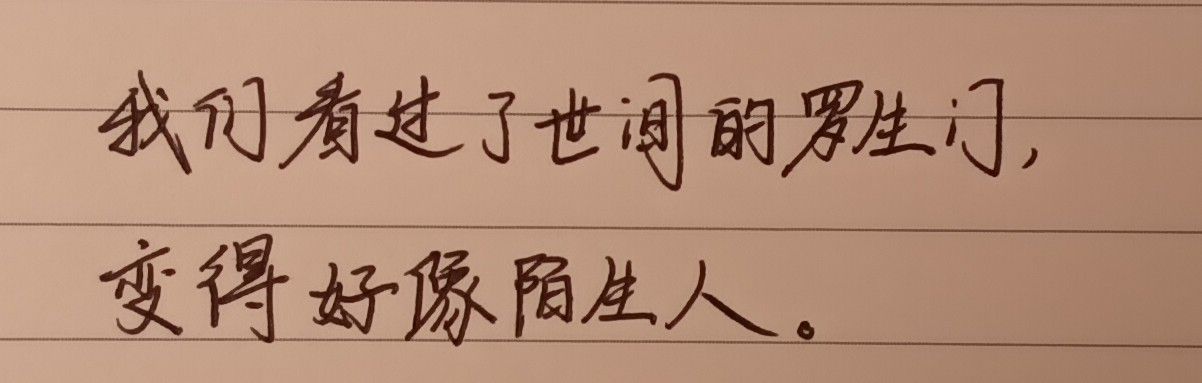 我们看过了世间的罗生门,
变得好像陌生人。